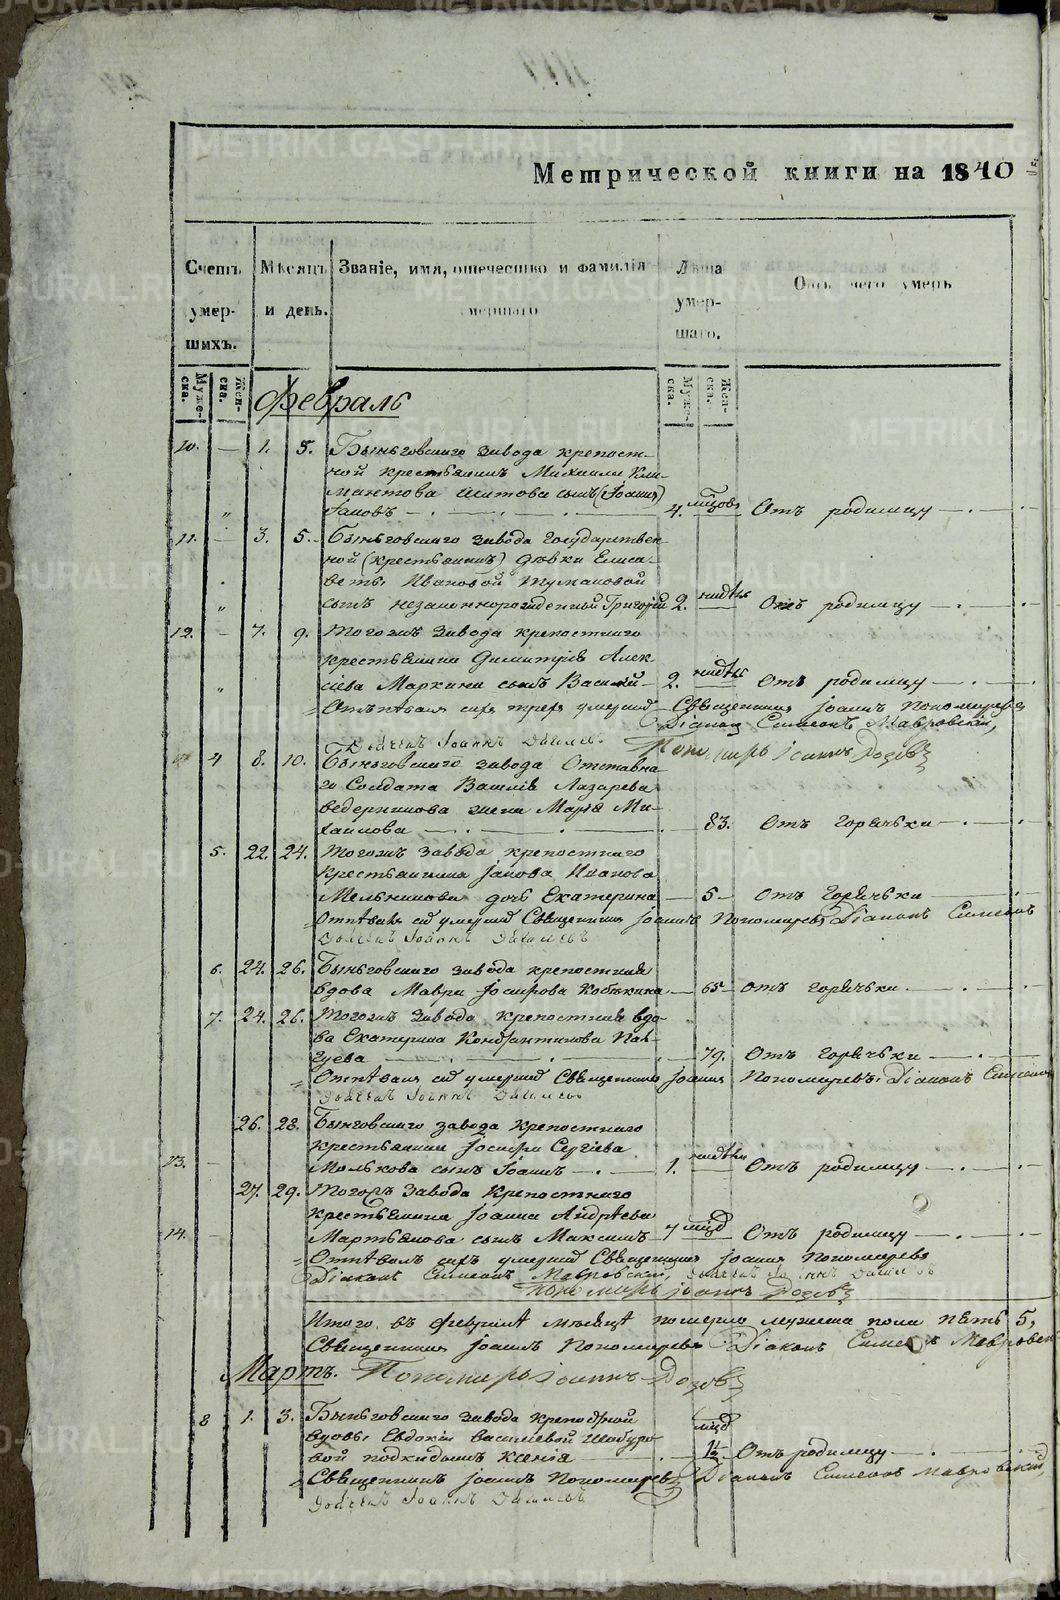 Метрической книги на 1840
Счетъ умер- шихъ.
Мѣсяцъ и день.
Званіе, имя, отчество и фамилія умершаго
Лѣта умер- шаго.
Отъ чего умеръ
Муже- ска.
Жен- ска.
Муже- ска.
Жен- ска.
Февраль
10. — 1. 5. Быньговскаго завода крепост-
ной крестьянинъ Михаила Кли-
мантова сынъ (Іоаннъ)
4. мѣсцовъ Отъ родимцу
11. — 3. 5. Быньговскаго завода государствен-
ной (крестьянинъ) дѣвки Елиса-
веты Ивановой Тумановой
сынъ незаконнорожденный Григорій 2. недѣль Отъ родимцу
12. — 7. 9. Тогожъ завода крепостнаго
крестьянина Димитрія Алек-
сіева Маркина сынъ Василій 2. недѣль Отъ родимцу
Отпѣвалъ сихъ трехъ умершихъ Священникъ Іоаннъ Пономаревъ
Діаконъ Симеонъ Мавровскій,
Дьячекъ Іоаннъ
Пономарь Іоаннъ Розовъ
4 8. 10. Быньговскаго завода Отставна-
го Солдата Василія Лазарева
Ведерникова жена Марія Ми-
хаилова 83. Отъ Горячьки
5. 22. 24. Тогожъ завода крепостнаго
крестьянина Іакова Иванова
Мельникова дочь Екатерина 5 Отъ Горячьки
Отпѣвалъ сихъ умершихъ Священникъ Іоаннъ Пономаревъ Діаконъ Симеонъ
Дьячекъ Іоаннъ
6. 24. 26. Быньговскаго завода крепостная
вдова Мавра Іосифова Кобякина 65 Отъ горячьки.
7. 24. 26. Тогожъ завода крепостная вдо-
ва Екатерина Константинова
79. Отъ горячьки
Отпѣвалъ сихъ умершихъ Священникъ Іоаннъ Пономаревъ. Діаконъ Симеонъ
Дьячекъ Іоаннъ
26. 28. Быньговскаго завода крепостнаго
крестьянина Іосифа Сергіева
13. — Молькова сынъ Іоаннъ 1. недѣли Отъ родимцу
27. 29. Тогожъ Завода Крепостнаго
крестьянина Іоанна Андрѣева
14. — Мартьянова сынъ Максимъ 4 мѣсц Отъ родимцу
Отпѣвалъ сихъ умершихъ Священникъ Іоаннъ Пономаревъ
Діаконъ Симеонъ Мавровскій, Дьячекъ Іоаннъ
Пономарь Іоаннъ Розовъ
Итого въ февралѣ мѣсяцѣ померло мужеска пола пять 5,
Священникъ Іоаннъ Пономаревъ Діаконъ Симеонъ Мавровскій
Мартъ. Пономарь Іоаннъ Розовъ
8 1. 3. Быньговскаго завода крепостной
вдовы Евдокіи Василіевой Шабуро-
вой подкидышъ Ксенія 1½. мѣсц Отъ родимцу
Священникъ Іоаннъ Пономаревъ Діаконъ Симеонъ Мавровскій,
Дьячекъ Іоаннъ
METRIKI.GASO-URAL.RU